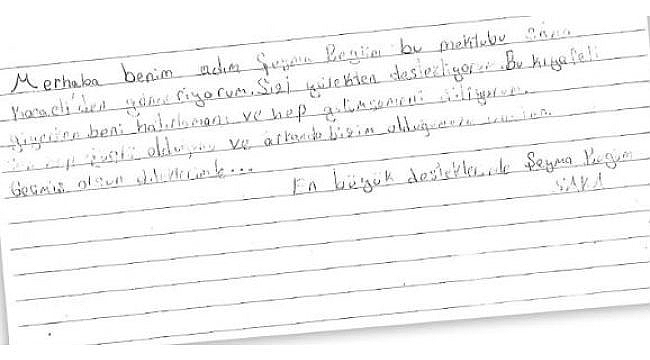 Merhaba benim adım Şeyma Begüm bu mektubu sana
Kocaeli'den gönderiyorum. Sizi yürekten destekliyorum. Bu kıyafeti
giyerken beni hatırlamanı ve hep gülümsemeni diliyorum.
olduğunu ve arkanda bizim olduğumuzu
Geçmiş olsun dileklerimle...
En büyük destekler ile Şeyma Begüm